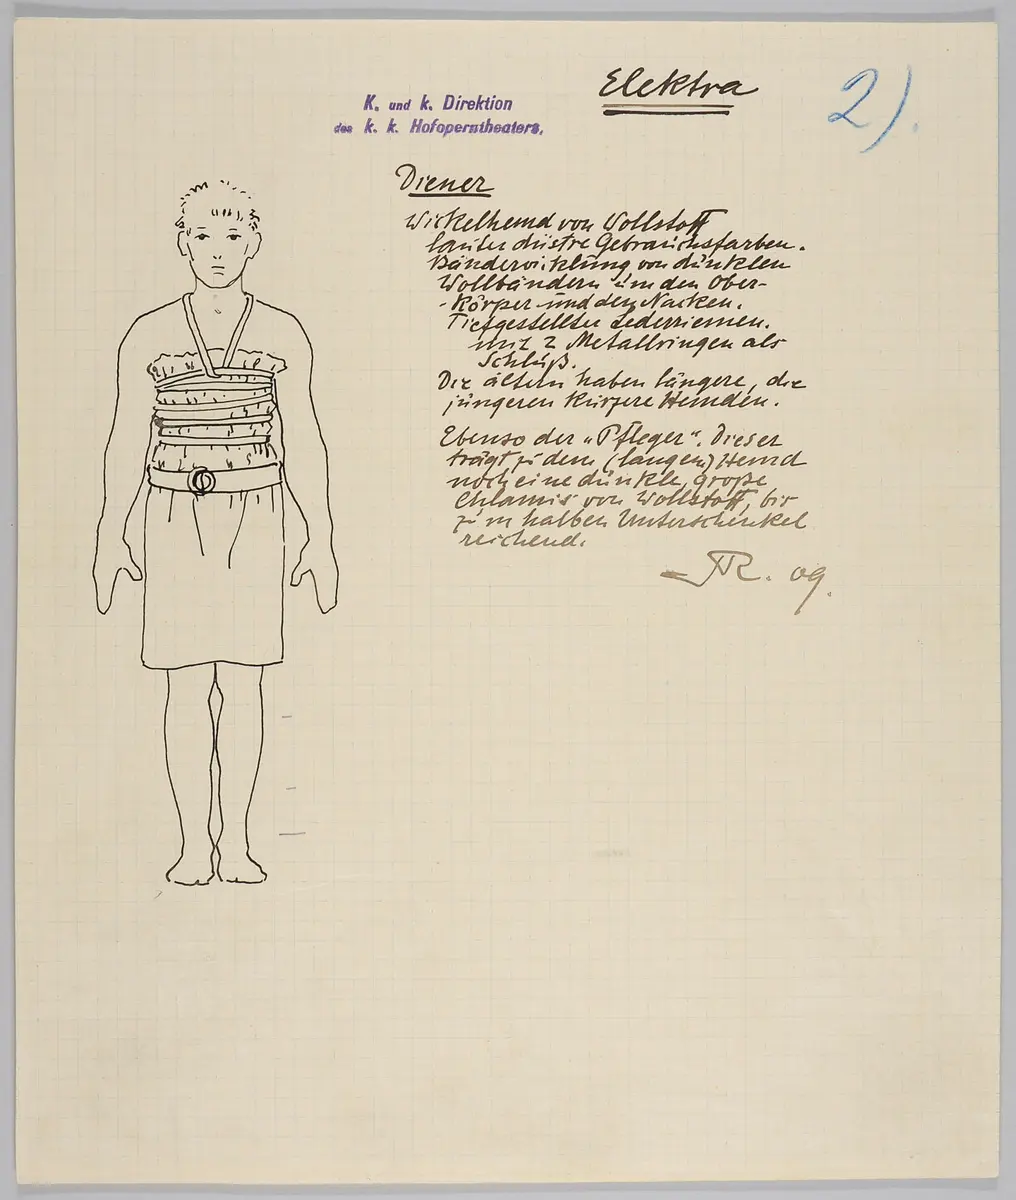 Elektra
2).
K. und k. Direktion
des k. k. Hofoperntheaters.
Diener
Wickelhemd von Wollstoff
lauter düstre Gebrauchsfarben.
Bänderwicklung von dunklen
Wollbändern um den Ober-
-körper und den Nacken.
Tiefgestellter Lederriemen.
mit 2 Metallringen als
Schluß.
Die ältern haben längere, die
jüngeren kürzere Hemden.
Ebenso der „Pfleger“. Dieser
trägt zu dem (langen) Hemd
noch eine dunkle, große
Chlamis von Wollstoff, bis
zum halben Unterschenkel
reichend.
AR. 09.